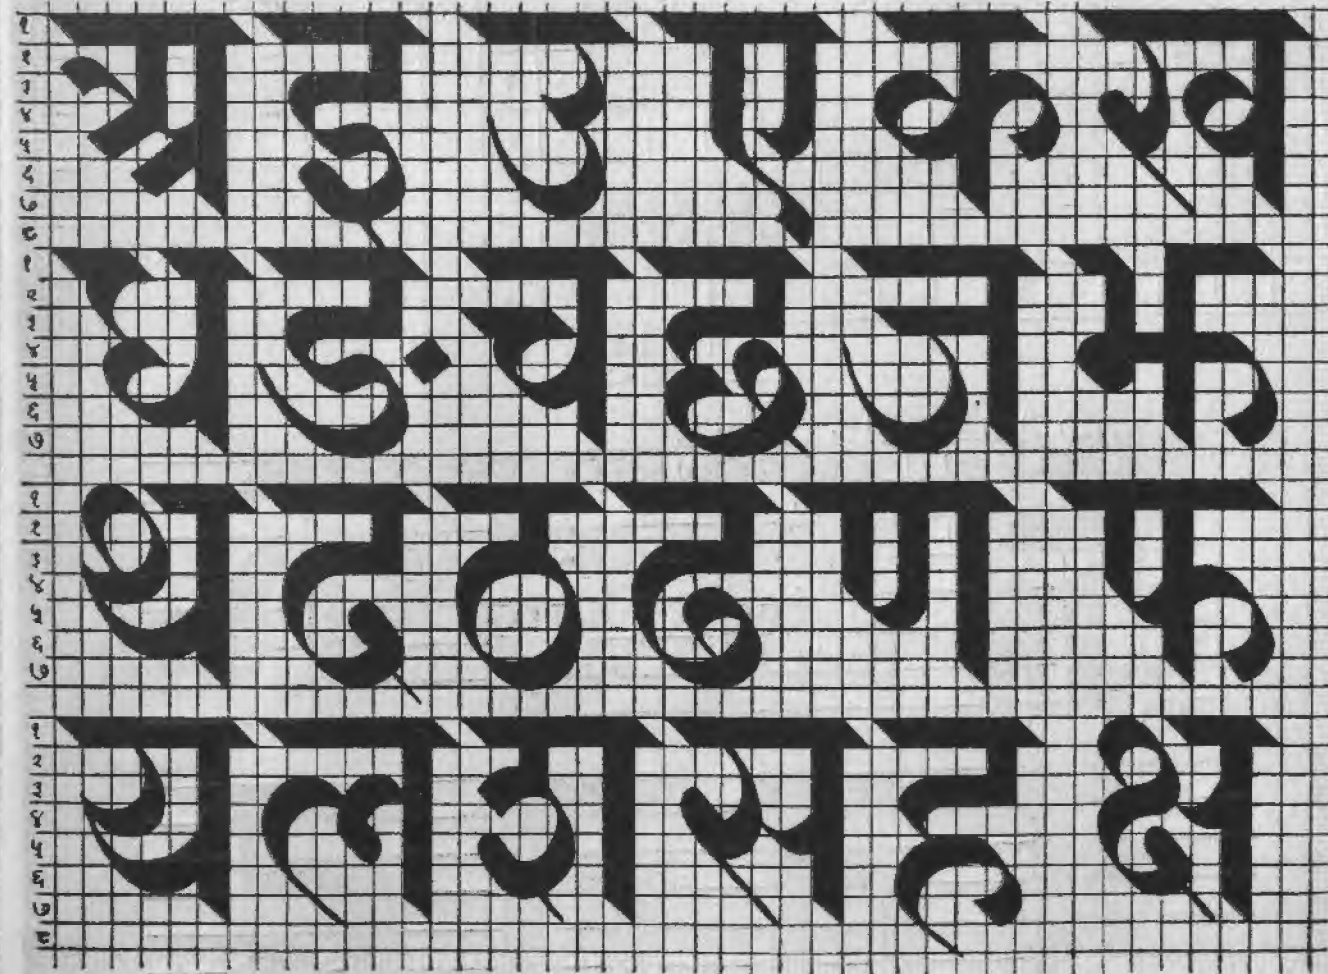 १
२
३
४
५
६
७
८
अ इ उ ए क ख
१
२
३
४
५
६
७
घ ङ च छ ज झ
१
२
३
४
५
६
७
थ द ठ ढ ण फ
१
२
३
४
५
६
७
८
य ल श स ह क्ष